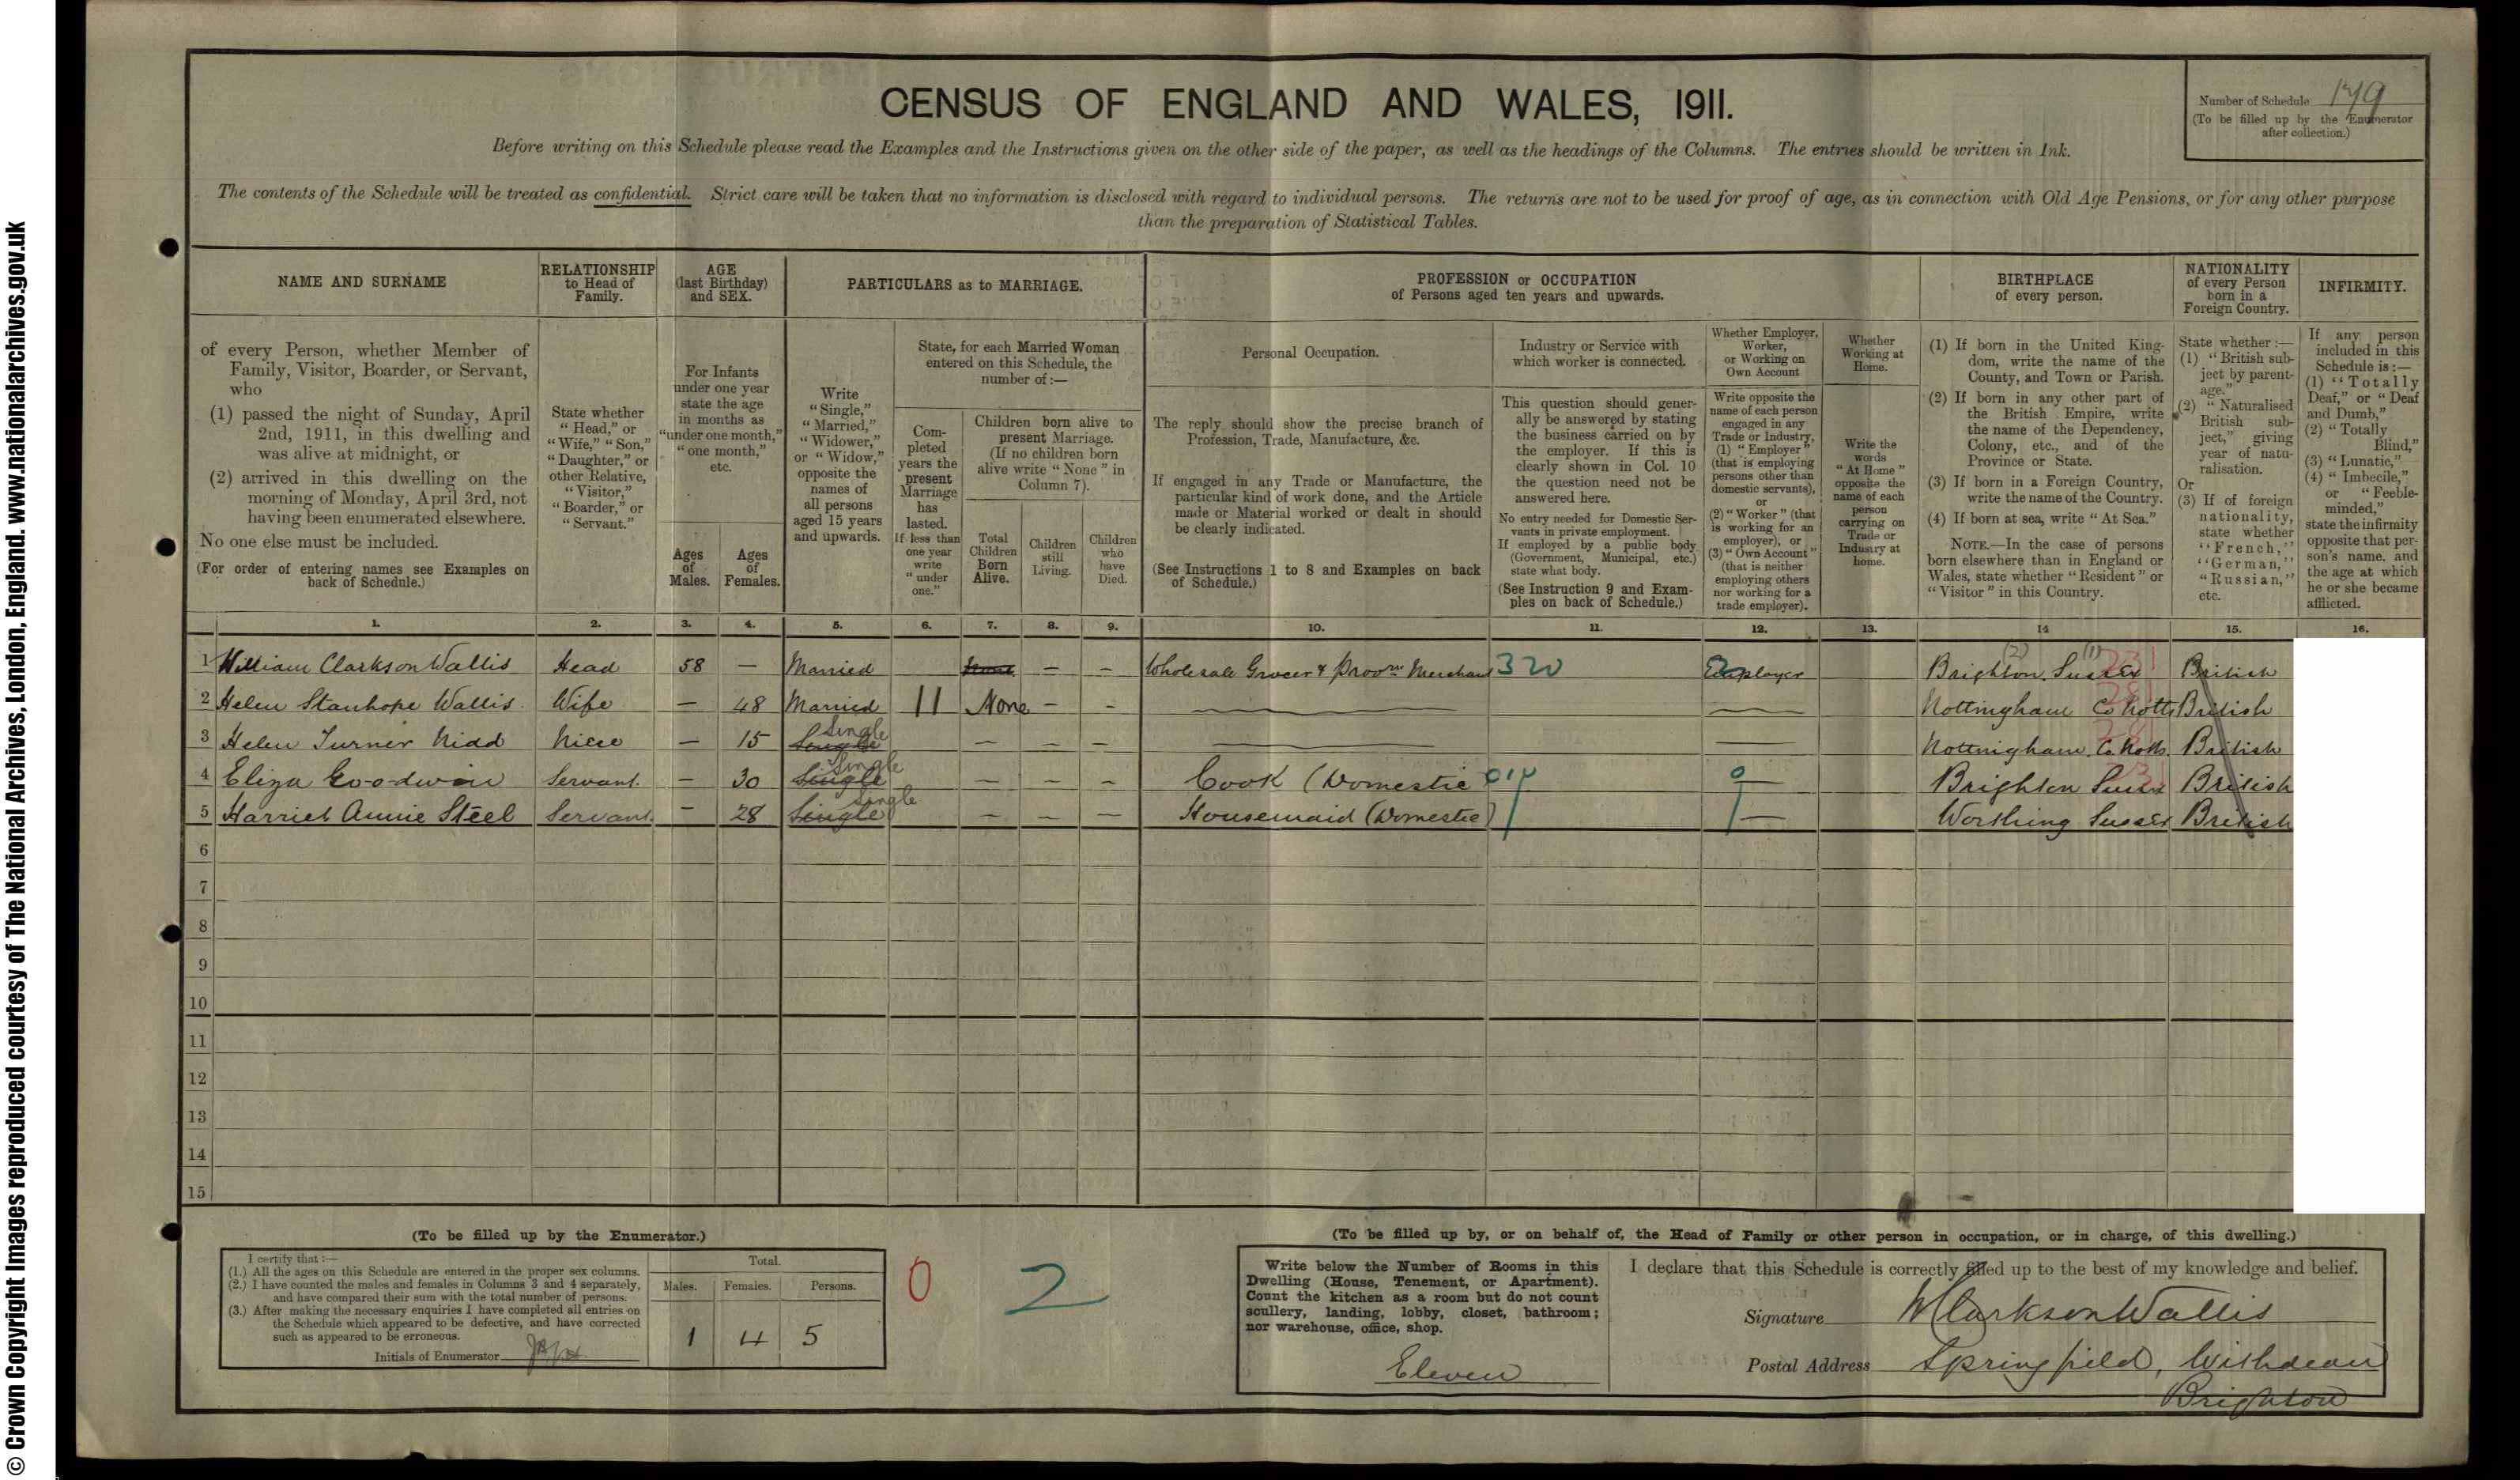 CENSUS OF ENGLAND AND WALES, 1911.
Number of Schedule 179
(To be filled up by the Enumerator
after collection.)
Before writing on this Schedule please read the Examples and the Instructions given on the other side of the paper, as well as the headings of the Columns. The entries should be written in Ink.
The contents of the Schedule will be treated as confidential. Strict care will be taken that no information is disclosed with regard to individual persons. The returns are not to be used for proof of age, as in connection with Old Age Pensions, or for any other purpose
than the preparation of Statistical Tables.
NAME AND SURNAME
of every Person, whether Member of
Family, Visitor, Boarder, or Servant,
who
(1) passed the night of Sunday, April
2nd, 1911, in this dwelling and
was alive at midnight, or
(2) arrived in this dwelling on the
morning of Monday, April 3rd, not
having been enumerated elsewhere.
No one else must be included.
(For order of entering names see Examples on
back of Schedule.)
RELATIONSHIP
to Head of
Family.
State whether
"Head," or
"Wife," "Son,"
"Daughter," or
other Relative,
"Visitor,"
"Boarder," or
"Servant."
AGE
(last Birthday)
and SEX.
For Infants
under one year
state the age
in months as
"under one month,"
"one month,"
etc.
Ages
of
Males.
Ages
of
Females.
PARTICULARS as to MARRIAGE.
Write
"Single,"
"Married,"
"Widower,"
or "Widow,"
opposite the
names of
all persons
aged 15 years
and upwards.
State, for each Married Woman
entered on this Schedule, the
number of :—
Com-
pleted
years the
present
Marriage
has
lasted.
If less than
one year
write
"under
one."
Children born alive to
present Marriage.
(If no children born
alive write "None" in
Column 7).
Total
Children
Born
Alive.
Children
still
Living.
Children
who
have
Died.
PROFESSION or OCCUPATION
of Persons aged ten years and upwards.
Personal Occupation.
The reply should show the precise branch of
Profession, Trade, Manufacture, &c.
If engaged in any Trade or Manufacture, the
particular kind of work done, and the Article
made or Material worked or dealt in should
be clearly indicated.
(See Instructions 1 to 8 and Examples on back
of Schedule.)
Industry or Service with
which worker is connected.
This question should gener-
ally be answered by stating
the business carried on by
the employer. If this is
clearly shown in Col. 10
the question need not be
answered here.
No entry needed for Domestic Ser-
vants in private employment.
If employed by a public body
(Government, Municipal, etc.)
state what body.
(See Instruction 9 and Exam-
ples on back of Schedule.)
Whether Employer,
Worker,
or Working on
Own Account
Write opposite the
name of each person
engaged in any
Trade or Industry,
(1) "Employer"
(that is employing
persons other than
domestic servants),
or
(2) "Worker" (that
is working for an
employer), or
(3) "Own Account"
(that is neither
employing others
nor working for a
trade employer).
Whether
Working at
Home.
Write the
words
"At Home"
opposite the
name of each
person
carrying on
Trade or
Industry at
home.
BIRTHPLACE
of every person.
(1) If born in the United King-
dom, write the name of the
County, and Town or Parish.
(2) If born in any other part of
the British Empire, write
the name of the Dependency,
Colony, etc., and of the
Province or State.
(3) If born in a Foreign Country,
write the name of the Country.
(4) If born at sea, write "At Sea."
NOTE.—In the case of persons
born elsewhere than in England or
Wales, state whether "Resident" or
"Visitor" in this Country.
NATIONALITY
of every Person
born in a
Foreign Country.
State whether :—
(1) "British sub-
ject by parent-
age."
(2) "Naturalised
British sub-
ject," giving
year of natu-
ralisation.
Or
(3) If of foreign
nationality,
state whether
"French,"
"German,"
"Russian,"
etc.
INFIRMITY.
If any person
included in this
Schedule is :—
(1) "Totally
Deaf," or "Deaf
and Dumb,"
(2) "Totally
Blind,"
(3) "Lunatic,"
(4) "Imbecile,"
or "Feeble-
minded,"
state the infirmity
opposite that per-
son's name, and
the age at which
he or she became
afflicted.
1. 2. 3. 4. 5. 6. 7. 8. 9. 10. 11. 12. 13. 14 15. 16.
(2) (1)
1 William Clarkson Wallis Head 58 — Married None — — Wholesale Grocer & Provn Merchant 320 Employer Brighton. Sussex 231 British
2 Helen Stanhope Wallis. Wife — 48 Married 11 None - - Nottingham Co Notts British
3 Helen Turner Nidd Niece — 15 Single Single — — — Nottingham. Co Notts. British
4 Eliza Goodwin Servant. — 30 Single Single — — — Cook (Domestic 014 0 Brighton Sussex British
5 Harriet Annie Steel Servant. — 28 Single Single — — — Housemaid (Domestic) — Worthing Sussex British
6
7
8
9
10
11
12
13
14
15
(To be filled up by the Enumerator.)
I certify that :—
(1.) All the ages on this Schedule are entered in the proper sex columns.
(2.) I have counted the males and females in Columns 3 and 4 separately,
and have compared their sum with the total number of persons.
(3.) After making the necessary enquiries I have completed all entries on
the Schedule which appeared to be defective, and have corrected
such as appeared to be erroneous.
Initials of Enumerator
Total.
Males. Females. Persons.
1 4 5
0 2
(To be filled up by, or on behalf of, the Head of Family or other person in occupation, or in charge, of this dwelling.)
Write below the Number of Rooms in this
Dwelling (House, Tenement, or Apartment).
Count the kitchen as a room but do not count
scullery, landing, lobby, closet, bathroom ;
nor warehouse, office, shop.
Eleven
I declare that this Schedule is correctly filled up to the best of my knowledge and belief.
Signature WClarksonWallis
Postal Address Springfield, Withdean
Brighton
© Crown Copyright Images reproduced courtesy of The National Archives, London, England. www.nationalarchives.gov.uk